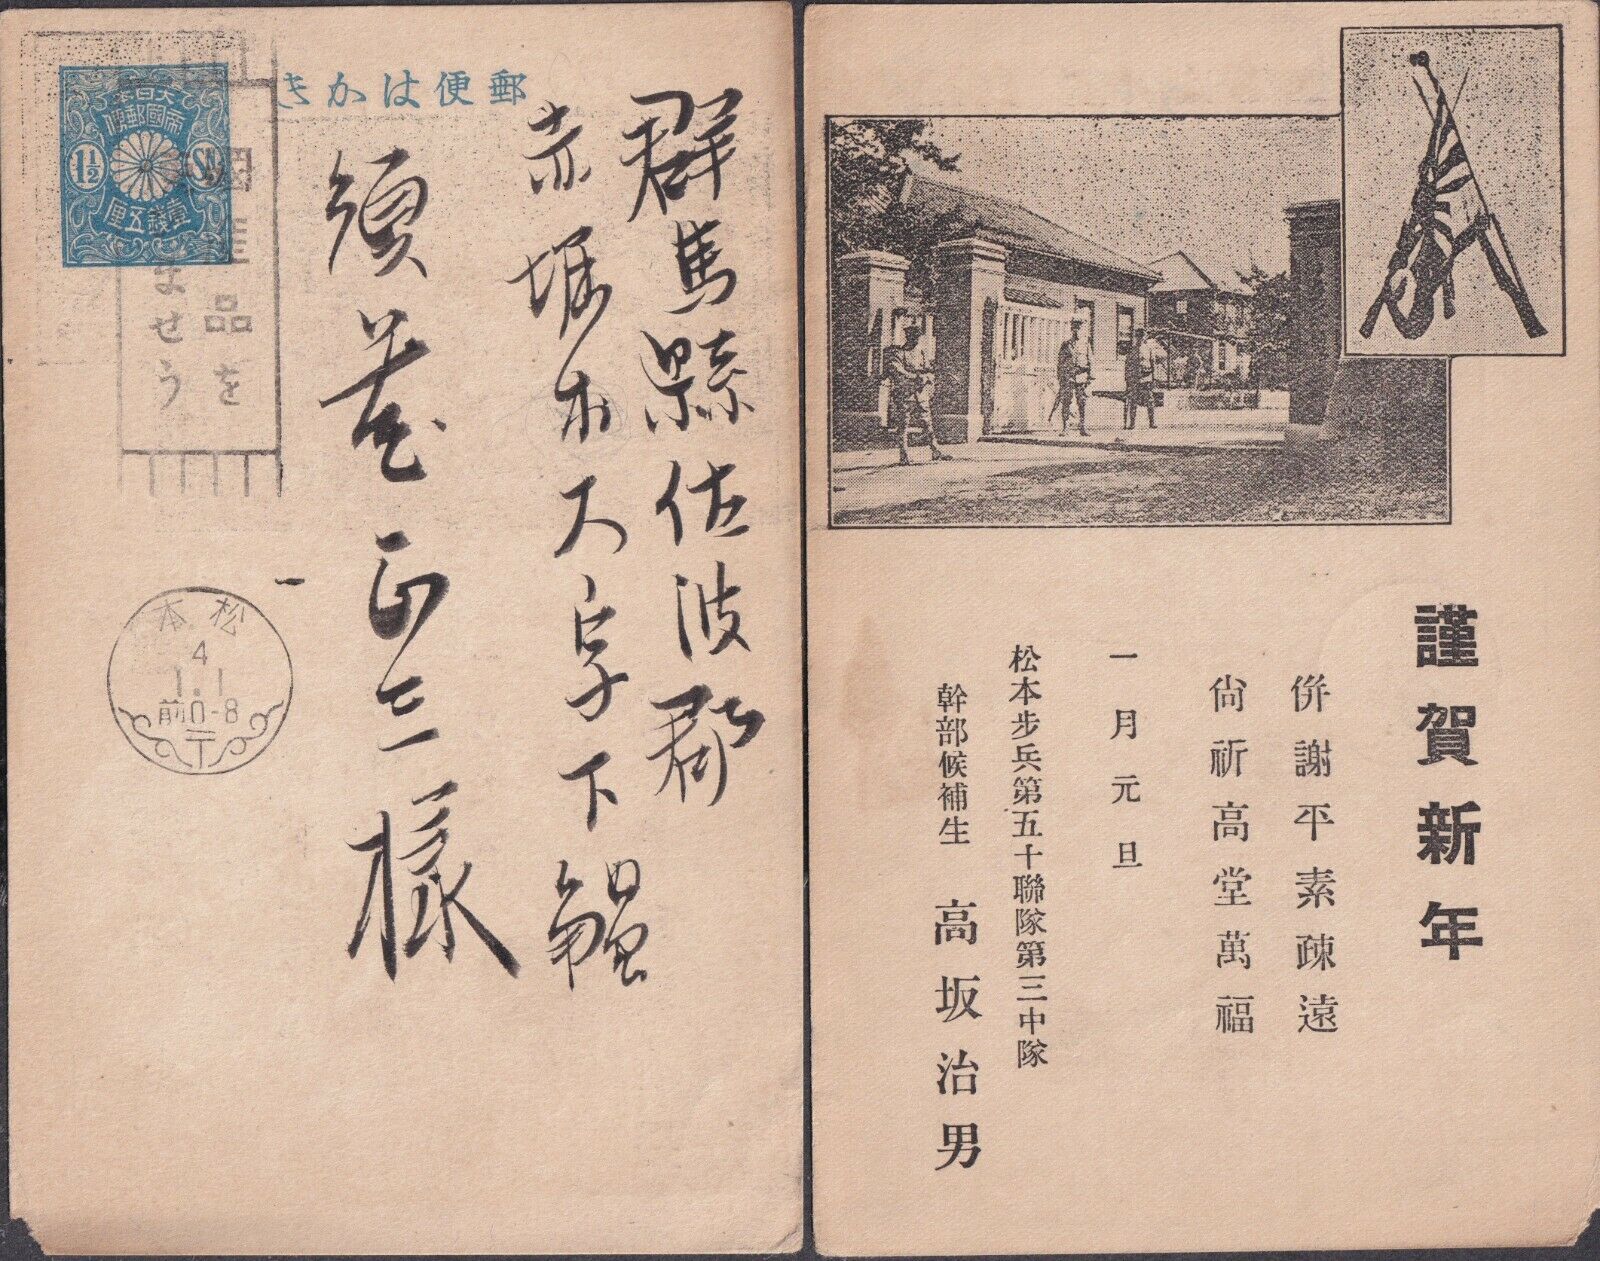 郵便はかき
大日本
帝國郵便
1½
Sn
壹錢五厘
國産品を
ませう
松本
4
1.1
前0-8
群馬縣佐波郡
赤堀村大字下觸
須藤正三様
謹賀新年
併謝平素疎遠
尙祈高堂萬福
一月元旦
松本步兵第五十聯隊第三中隊
幹部候補生 高坂治男